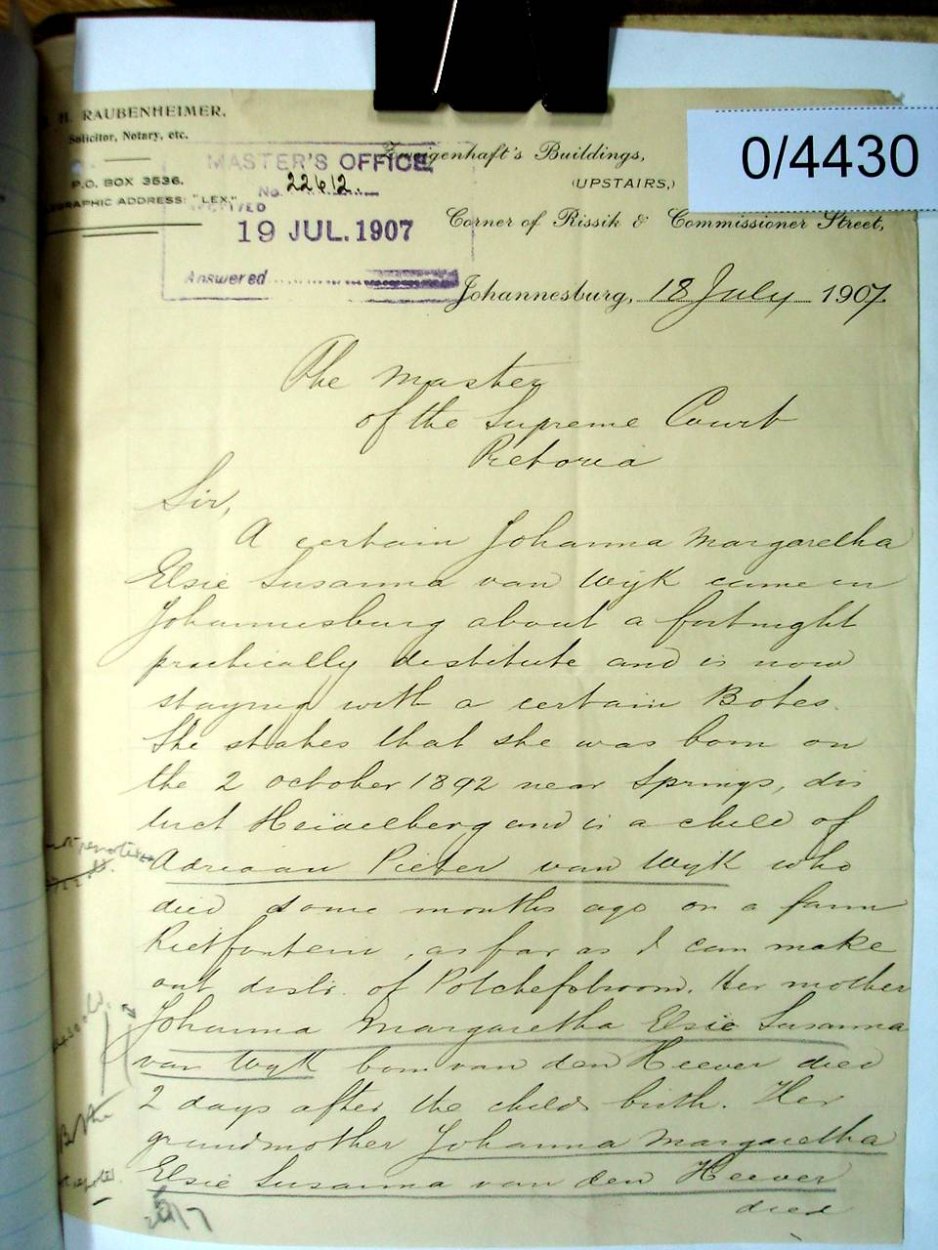 H. RAUBENHEIMER.
Solicitor, Notary, etc.
P.O. BOX 3536.
GRAPHIC ADDRESS: "LEX."
MASTER'S OFFICE
No. 22612
19 JUL. 1907
Answered
0/4430
genhaft's Buildings,
(UPSTAIRS,)
Corner of Rissik & Commissioner Street,
Johannesburg, 18 July 1907.
The Master
of the Supreme Court
Pretoria
Sir,
A certain Johanna Margaretha
Elsie Susanna van Wijk came in
Johannesburg about a fortnight
practically destitute and is now
staying with a certain Botes.
She states that she was born on
the 2 October 1892 near Springs, dis
trict Heidelberg and is a child of
Adriaan Pieter van Wijk who
died some months ago on a farm
Rietfontein, as far as I can make
out distr. of Potchefstroom. Her mother
Johanna Margaretha Elsie Susanna
van Wijk born van den Heever died
2 days after the childs birth. Her
grandmother Johanna Margaretha
Elsie Susanna van den Heever
died